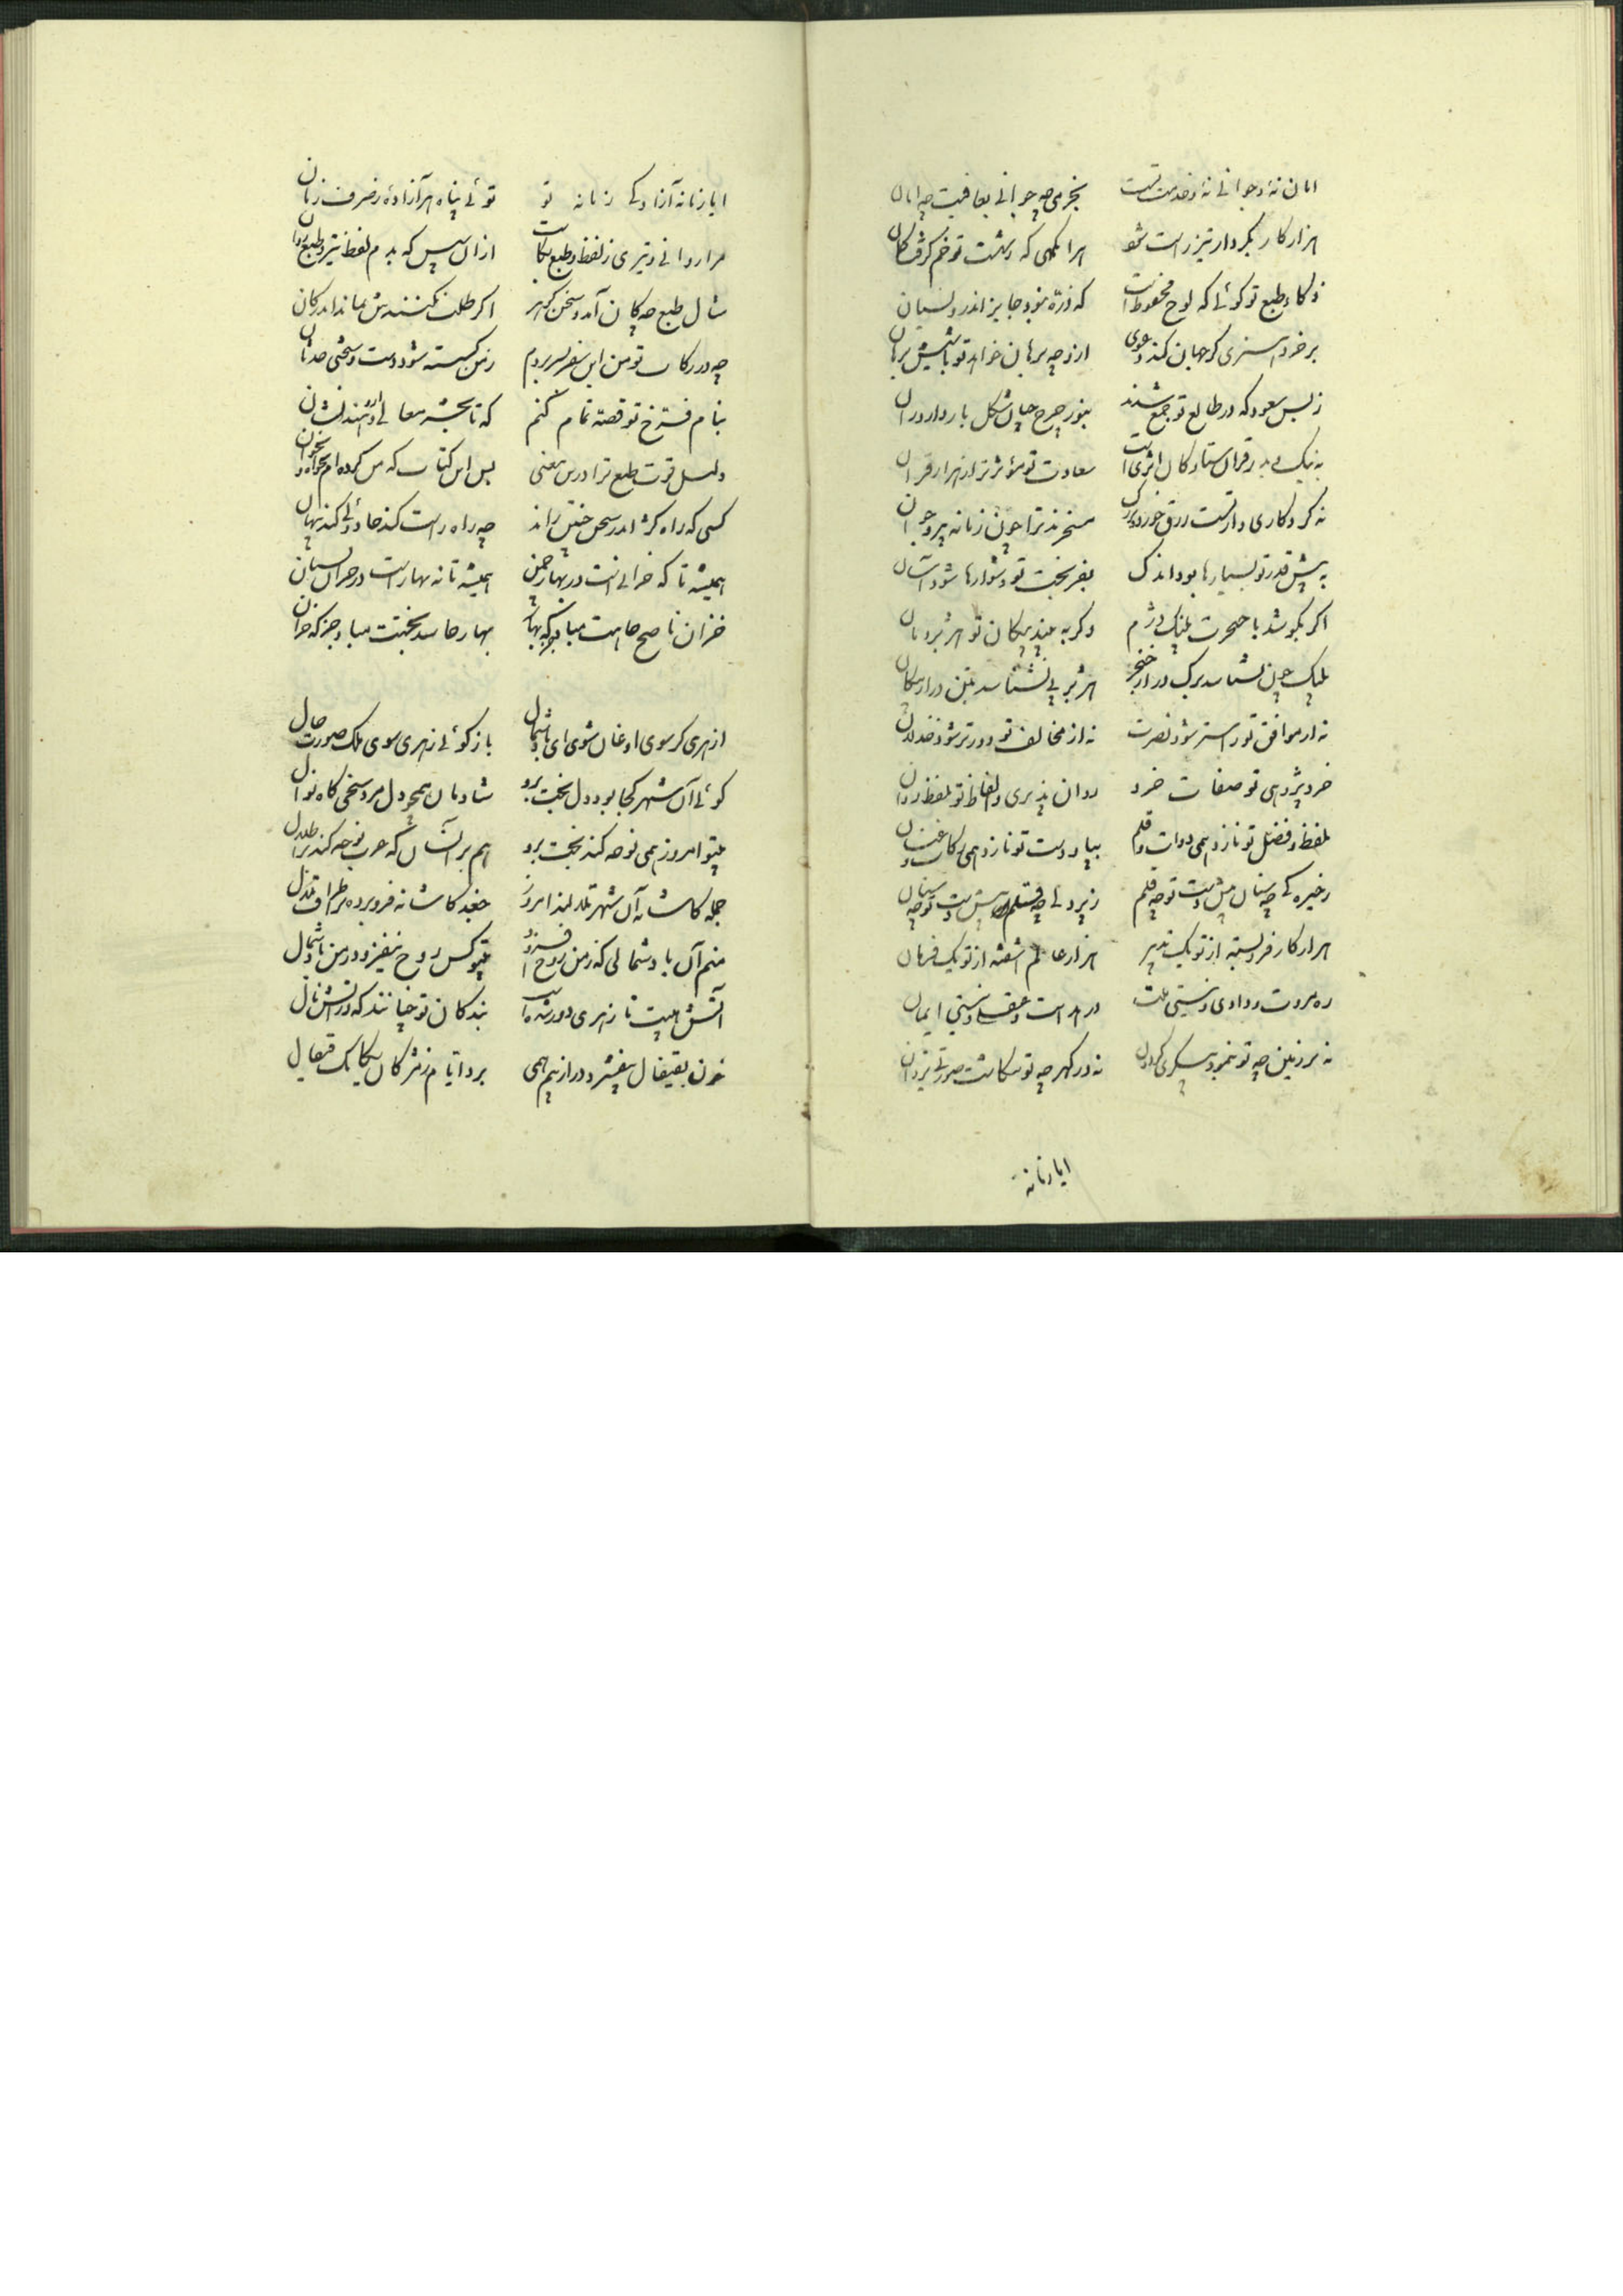 امان نهٔ و جوانی نهٔ و خدمت تست بخرمی چه جوانی بعافیت چه امان
هزار کار بکردار تیر راست شو هر انکهی که بشت تو خم کرفت کمان
ذکاء طبع تو کوئی که لوح محفوظ است که ذرّه نبود جایز اندرو نسیان
بر خرد هنری کر جهان کند دعوی ازو چه برهان خواهد تو باشیش برهان
ز بس سعود که در طالع تو جمع شدند بنور چرخ
به نیک و بد ز قران ستارکان اثری است سعادت تو مؤثرتر از هزار قران
نه کردکاری و از تست رزق خورد و بزرک مسخرند ترا چون زمانه پیر و جوان
به پیش قدر تو بسیارها بود اندک بفر بخت تو دشوارها شود آسان
اکر بکوشد با خنجرت پلنک دژم و کر به بیند پیکان تو هژبر دمان
پلنک چون بشناسد بر کف در از خنجر هژبر بی نشناسد بتن در از پیکان
نه از موافق تو راستر شود نصرت نه از مخالف تو دورتر شود خذلان
خرد پژوهی تو صفات خرد روان پذیری و الفاظ تو بلفظ روان
بلفظ و فضل تو نازد همی دوات و قلم بپا و دست تو نازد همی رکاب و عنان
ز خیرکی چه سنان پیش دست تو چه قلم ز تیزی چه قلم پیش دست تو چه سنان
هزار کار فروبسته از تو یک تدبیر هزار عالم آشفته از تو یک فرمان
ره مروت و رادی و نیستی ملت در هدایت و عقلی و نیستی ایمان
نه بر زمین چه تو بنمود پیکری کردون نه در کهر چه تو بنکاشت صورتی یزدان
ایا زمانه

ایا زمانه آزادکی زمانه تو توئی پناه هر آزادهٔ ز صرف زمان
مرا روانی و تیزی ز لفظ و طبع بکاست از ان سپس که بدم لفظ تیز و طبع روان
مثال طبع چه کان آمد و سخن کوهر اکر طلب نکنندش بماند اندر کان
چه در رکاب تو من این سفر بسر بردم ز من کسسته شود دست و سختی حدثان
بنام فرّخ تو قصه تمام کنم که
دلیل قوت طبع ترا درین معنی بس این کتاب که من کرده ام بخواه و بخوان
کسی که راه کژ اندر سخن چنین راند چه راه راست کند جادوئی کند پنهان
همیشه تا که خزانی است در بهار چمن همیشه تا نه بهار است در خزان بستان
خزان ناصح جاهت مباد جز که بهار بهار حاسد بختت مباد جز که خزان

از هری کر سوی اوغان شوی ای باد شمال باز کوئی ز هری سوی ملک صورت حال
کوئی آن شهر کجا بود دل بخت برو شادمان همچو دل مرد سخی کاه نوال
بیتو امروز همی نوحه کند بخت برو هم بر آنسان که عرب نوحه کند بر اطلال
جمله کاشانه آن شهر امروز جغد کاشانه فرو برده
منم آن باد شمالی که ز من روح افزود بیتو کس روح نیفزود ز من باد شمال
آتش هیبت تا ز هری دور شده است بندکان تو چنانند که در آتش نال
خون بقیفال بیفشرد در از بیم همی برد ایام ز مژکان یکایک قیفال